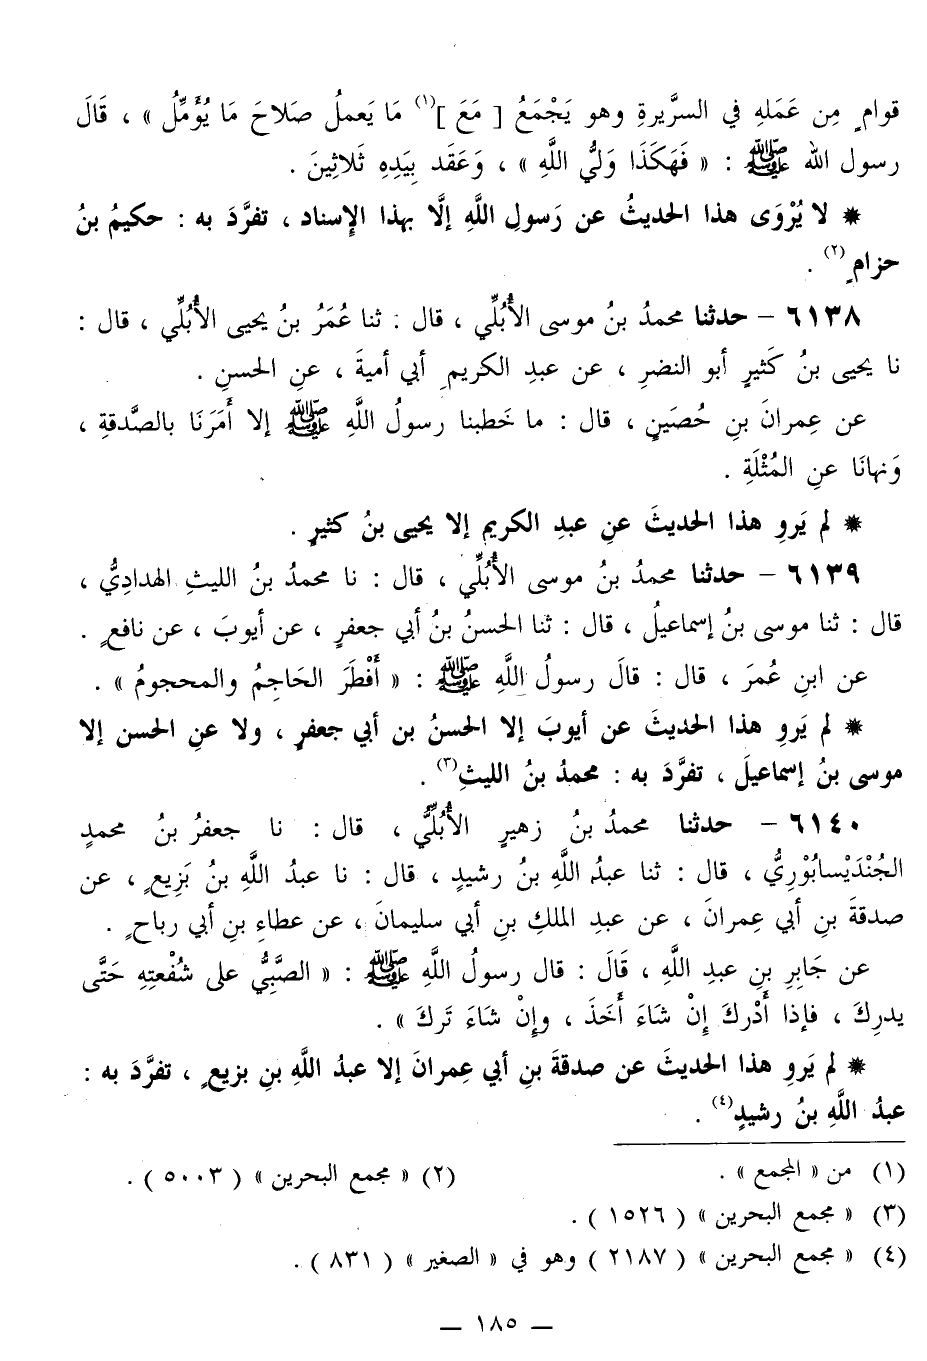 قوامٍ مِن عَمَلهِ في السرَّيرةِ وهو يَجْمَعُ [ مَعَ ](١) مَا يَعملُ صَلاحَ مَا يُؤَمِّلُ » ، قَالَ
رسول الله ﷺ : « فَهكَذَا وَليُّ اللَّهِ » ، وَعَقَد بِيَدِهِ ثَلاثِينَ .
* لا يُرْوَى هذا الحديثُ عن رَسولِ اللَّهِ إلَّا بهذا الإِسناد ، تفرَّدَ به : حكيمُ بنُ
حزامٍ(٢) .
٦١٣٨ – حدثنا محمدُ بنُ موسى الأُبُلِّي ، قال : ثنا عُمَرُ بنُ يحيى الأُبُلِّي ، قال :
نا يحيى بنُ كَثيرٍ أبو النضرِ ، عن عبدِ الكريمِ أبي أميةَ ، عنِ الحسنِ .
عن عِمرانَ بنِ حُصَينٍ ، قال : ما خَطبنا رسولُ اللَّهِ ﷺ إلا أَمَرَنَا بالصَّدقةِ ،
وَنهانَا عنِ المُثْلَةِ .
* لم يَروِ هذا الحديثَ عنِ عبدِ الكريم إلا يحيى بنُ كثيرٍ .
٦١٣٩ – حدثنا محمدُ بنُ موسى الأُبُلِّي ، قال : نا محمدُ بنُ الليثِ الهدادِيُّ ،
قال : ثنا موسى بنُ إسماعيلُ ، قال : ثنا الحسنُ بنُ أبي جعفرٍ ، عن أيوبَ ، عن نافعٍ .
عن ابنِ عُمرَ ، قال : قالَ رسولُ اللَّهِ ﷺ : « أَفْطَرَ الحَاجِمُ والمحجومُ » .
* لم يَروِ هذا الحديثَ عن أيوبَ إلا الحسنُ بن أبي جعفرٍ ، ولا عنِ الحسن إلا
موسى بنُ إسماعيلَ ، تفرَّدَ به : محمدُ بنُ الليثِ(٣) .
٦١٤٠ – حدثنا محمدُ بنُ زهيرٍ الأُبُلِّيُّ ، قال : نا جعفرُ بنُ محمدٍ
الجُنْدَيْسابُوْرِيُّ ، قال : ثنا عبدُ اللَّهِ بنُ رشيدٍ ، قال : نا عبدُ اللَّهِ بنُ بَزِيعٍ ، عن
صدقةَ بنِ أبي عِمرانَ ، عن عبدِ الملكِ بنِ أبي سليمانَ ، عن عطاءِ بنِ أبي رباحٍ .
عن جَابِرِ بنِ عبدِ اللَّهِ ، قَالَ : قال رسولُ اللَّهِ ﷺ : « الصَّبِّيُ على شُفْعتِهِ حَتَّى
يدرِكَ ، فإذا أَدْركَ إِنْ شَاءَ أَخَذَ ، وإِنْ شَاءَ تَركَ » .
* لم يَروِ هذا الحديثَ عن صدقةَ بنِ أبي عِمرانَ إلا عبدُ اللَّهِ بنِ بزيعٍ ، تفرَّدَ به :
عبدُ اللَّهِ بنُ رشيدٍ(٤) .
(١) من « المجمع » . (٢) « مجمع البحرين » ( ٥٠٠٣ ) .
(٣) « مجمع البحرين » ( ١٥٢٦ ) .
(٤) « مجمع البحرين » ( ٢١٨٧ ) وهو في « الصغير » ( ٨٣١ ) .
— ١٨٥ —